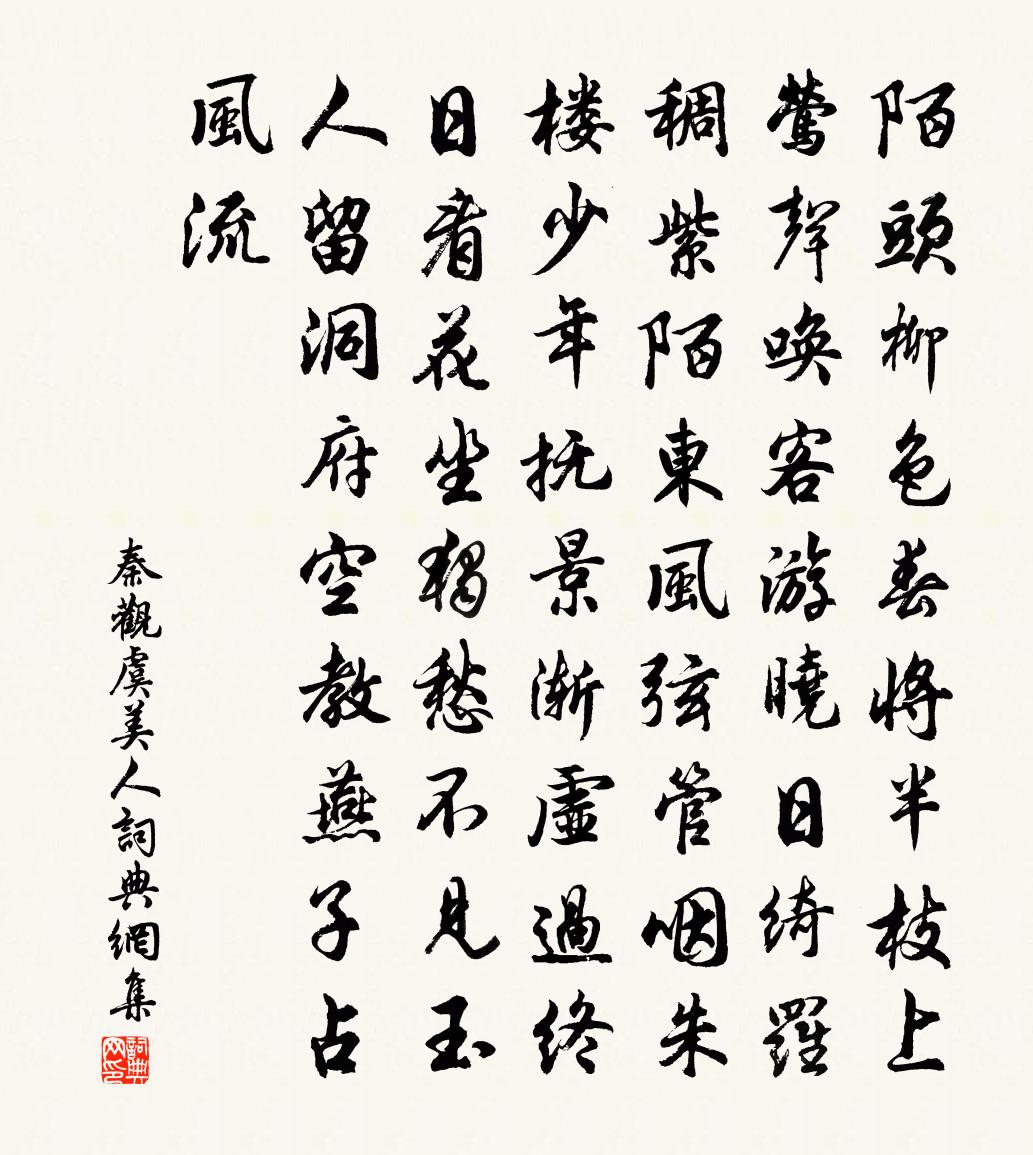 陌頭柳色春將半枝上
鶯聲喚客游曉日綺羅
稠紫陌東風弦管咽朱
楼少年抚景渐虛過終
日看花坐獨愁不見玉
人留洞府空教燕子占
風流
秦觀虞美人詞典網集
詞典网印